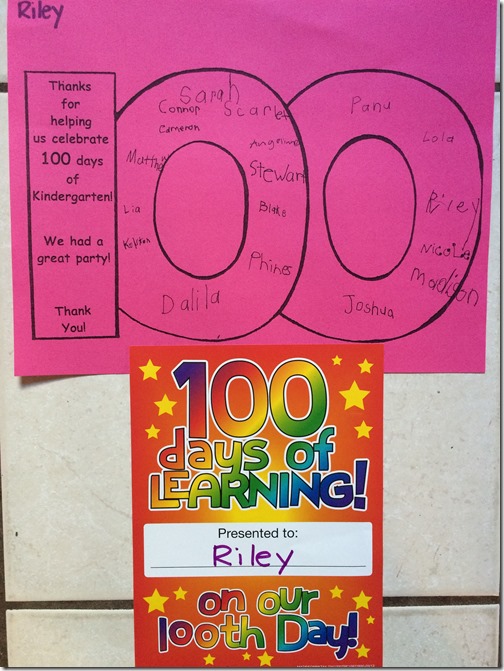 Riley
Thanks
for
helping
us celebrate
100 days
of
Kindergarten!
We had a
great party!
Thank
You!
Sarah
Connor Scarlet
Cameron
Angelina
Matthew
Stewart
Lia
Blake
Phines
Dalila
Panu
Lola
Riley
Nicole
Madison
Joshua
100
days of
LEARNING!
Presented to:
Riley
on our
100th Day!